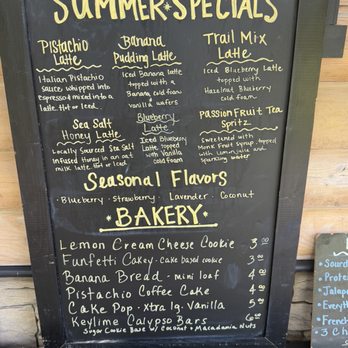 SUMMER SPECIALS
Pistachio
Latte
Italian Pistachio
sauce whipped into
espresso mixed into a
latte. Hot or iced.
Banana
Pudding Latte
Iced Banana latte
topped with a
Banana cold foam
Vanilla wafers
Trail Mix
Latte
Iced Blueberry Latte
topped with
Hazelnut Blueberry
cold foam
Sea Salt
Honey Latte
Locally Sourced Sea Salt
infused Honey in an oat
milk latte. Hot or iced
Blueberry
Latte
Iced Blueberry
Latte topped
with Vanilla
cold foam
Passion Fruit Tea
Spritz
Sweetened with
Monk Fruit syrup, topped
with Lemon juice and
sparkling water
Seasonal Flavors
Blueberry · Strawberry · Lavender · Coconut
BAKERY
Lemon Cream Cheese Cookie · 3.00
Funfetti Cakey · cake based cookie 3.00
Banana Bread · mini loaf 4.00
Pistachio Coffee Cake 4.00
Cake Pop · Xtra lg. Vanilla 5.00
Keylime Calypso Bars 6.00
Sugar Cookie Base w/ Coconut + Macadamia Nuts
Sourd
Prote
Jalap
Every
French
3 Ch